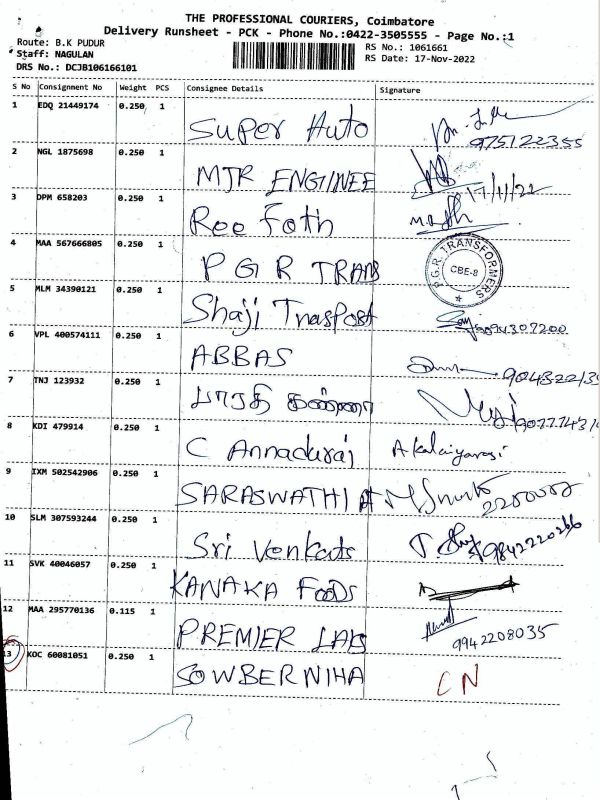 THE PROFESSIONAL COURIERS, Coimbatore
Delivery Runsheet - PCK - Phone No.:0422-3505555 - Page No.:1
Route: B.K PUDUR
Staff: NAGULAN
DRS No.: DCJB106166101
RS No.: 1061661
RS Date: 17-Nov-2022
S No Consignment No Weight PCS Consignee Details Signature
1 EDQ 21449174 0.250 1 Super Auto 975122355
2 NGL 1875698 0.250 1 MJR ENGINEE 17/11/22
3 DPM 658203 0.250 1 Roe Foth
4 MAA 567666805 0.250 1 P G R TRANS P.G.R. TRANSFORMERS CBE-8
5 MLM 34390121 0.250 1 Shaji Traspost
6 VPL 400574111 0.250 1 ABBAS
7 TNJ 123932 0.250 1 பாரதி கண்ணா
8 KDI 479914 0.250 1 C Annadurai A Kalaiyarasi
9 IXM 502542906 0.250 1 SARASWATHI
10 SLM 307593244 0.250 1 Sri Venkats 9842220266
11 SVK 40046057 0.250 1 KANAKA FOODS
12 MAA 295770136 0.115 1 PREMIER LAB 9942208035
13 KOC 60081051 0.250 1 SOWBERNIHA CN